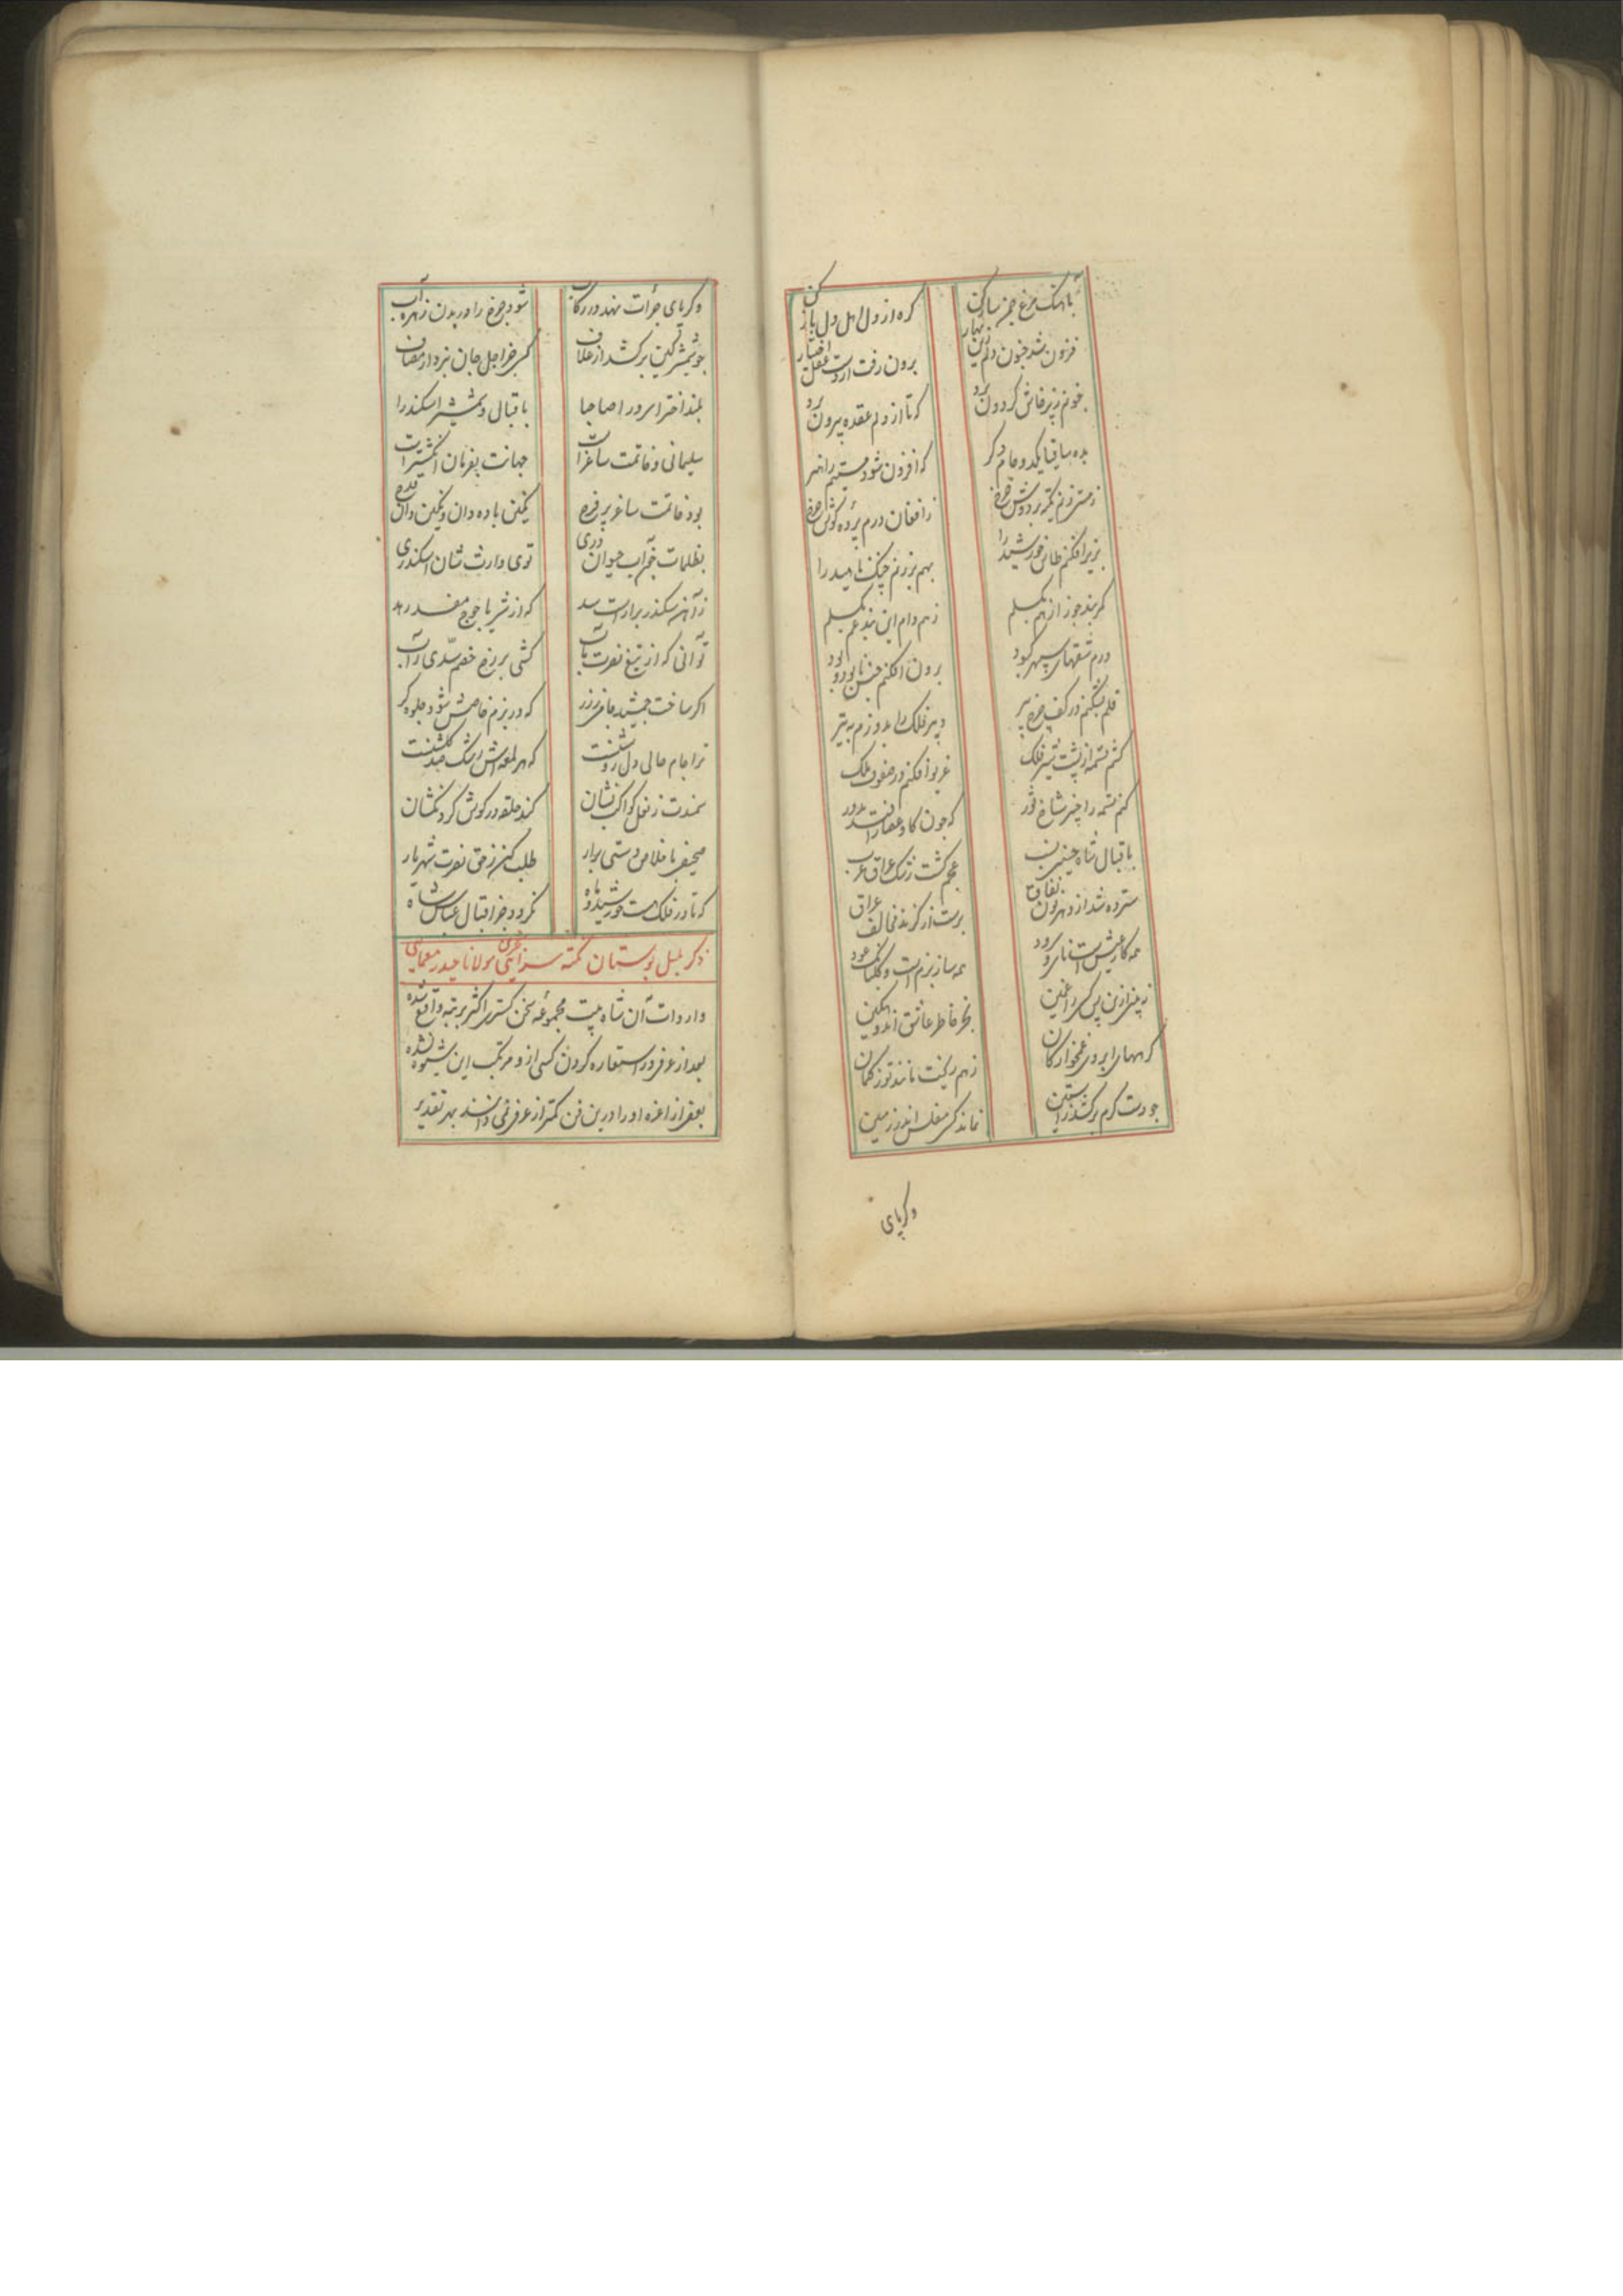 بآهنگ مرغ چمن ساز کن گره از دل اهل دل باز کن
فزون شد جنون دلم زین بهار برون رفت از دست عقل اختیار
بخونم زیر فاش گردون برد که تا از دلم عقده بیرون برد
بده ساقیا یکدو جام دگر که افزون شود مستیم را
ز مستی زنم تکیه بر دوش چرخ ز افغان درم پرده گوش چرخ
بزیر افکنم طاس خورشید را بهم بر زنم چنگ ناهید را
کمربند جوزا ز هم بگسلم ز هم دام این بند غم بگسلم
درم شقهای سپهر کبود برون افکنم جنس نابود و بود
قلم بشکنم در کف چرخ پیر دبیر فلک را بدوزم به تیر
کشم تسمه از پشت شیر فلک غریو افکنم در صفوف ملک
کنم تسمه را چنبر شاخ ثور که چون گاو عصار افتد بدور
باقبال شاه حسینی نسب عجم گشت رشک عراق عرب
سترده شد از دهر لون نفاق برست از گزند مخالف عراق
همه کار عیش است نای و سرود همه ساز بزم است و گلبانگ عود
نه بینی ازین پس کسی را غمین بجز خاطر عاشق اندوهگین
گرههای ابروی غمخوارگان ز هم ریخت مانند توز کمان
چو دست کرم برکشد ز آستین نماند کسی مفلس اندر زمین
وگر پای
وگر پای جرأت نهد در رکاب شود چرخ را در بدن زهره آب
چو شمشیر کین برکشد از غلاف کسی جز اجل جان نبرد از مصاف
بلند اخترا سرورا صاحبا باقبال و شمشیر اسکندرا
سلیمانی و خاتمت ساغر است جهانت بفرمان انگشتر است
بود خاتمت ساغر پر فرح نگین باده دان و نگین دان قدح
بظلمات خم آب حیوان دری توی وارث شان اسکندری
ز آهن سکندر برآراست سد که از شر یاجوج مفسد رهد
تو آنی که از تیغ نصرت مآب کشی بر رخ خصم سدی ز آب
اگر ساخت جمشید جامی ز زر که در بزم خاصش شود جلوه گر
ترا جام حالی دل روشنست که هر لمعه اش رشک صد گلشنست
سمندت ز نعل کواکب نشان کند حلقه در گوش گردنکشان
صحیفی باخلاص دستی برار طلب کن ز حق نصرت شهریار
که تا در فلک هست خورشید و ماه نگردد جز اقبال عباس شاه
ذکر بلبل بوستان نکته سرایی مولانا حیدر معمایی
واردات آن شاه بیت مجموعه سخن گستری اکثر برتبه واقع شده
بعد از عرفی در استعاره کردن کسی ازو مرتکب این شیوه نشده
بعضی از اعزه او را درین فن کمتر از عرفی نمی دانند بهر تقدیر